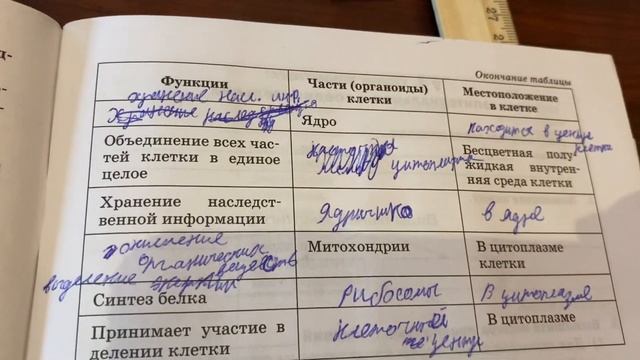 27
Окончание таблицы
Функции
Части (органоиды) клетки
Местоположение в клетке
хранение нас. инф.
Ядро
находится в центре клетки
Объединение всех час-
тей клетки в единое
целое
цитоплазма
Бесцветная полу-
жидкая внутрен-
няя среда клетки
Хранение наследст-
венной информации
Ядрышко
в ядре
окисление
органических
веществ
выделение энергии
Митохондрии
В цитоплазме
клетки
Синтез белка
Рибосомы
В цитоплазме
Принимает участие в
делении клетки
Клеточный
центр
В цитоплазме